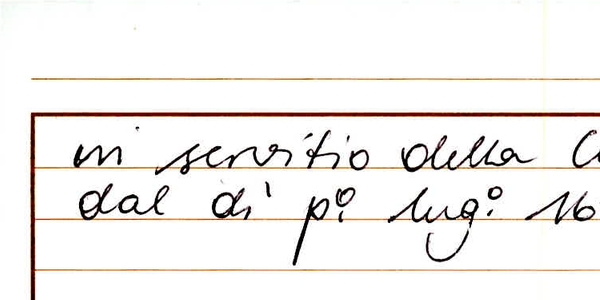 in servitio della
dal dì p.º lug.º 16